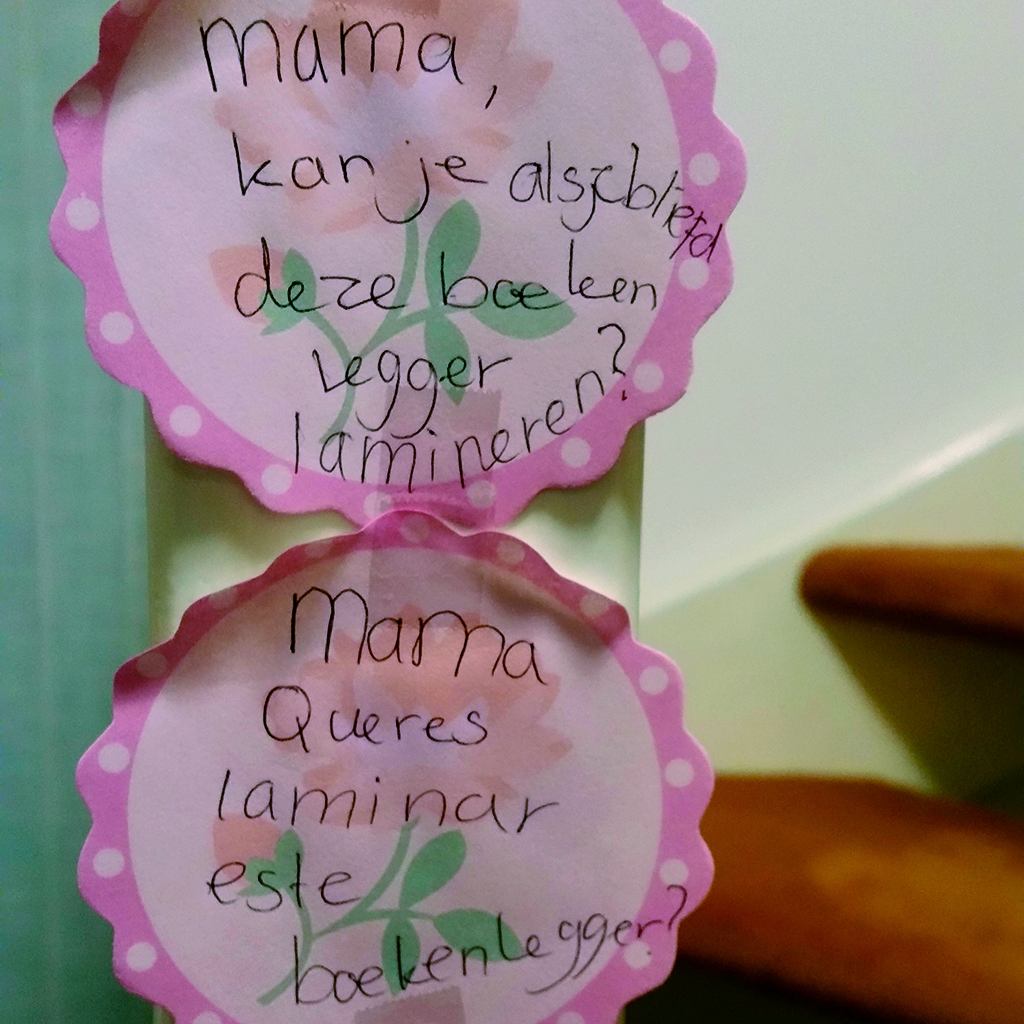 mama,
kan je alsjebliefd
deze boeken
legger
lamineren?
Mama
Queres
laminar
este
boekenlegger?